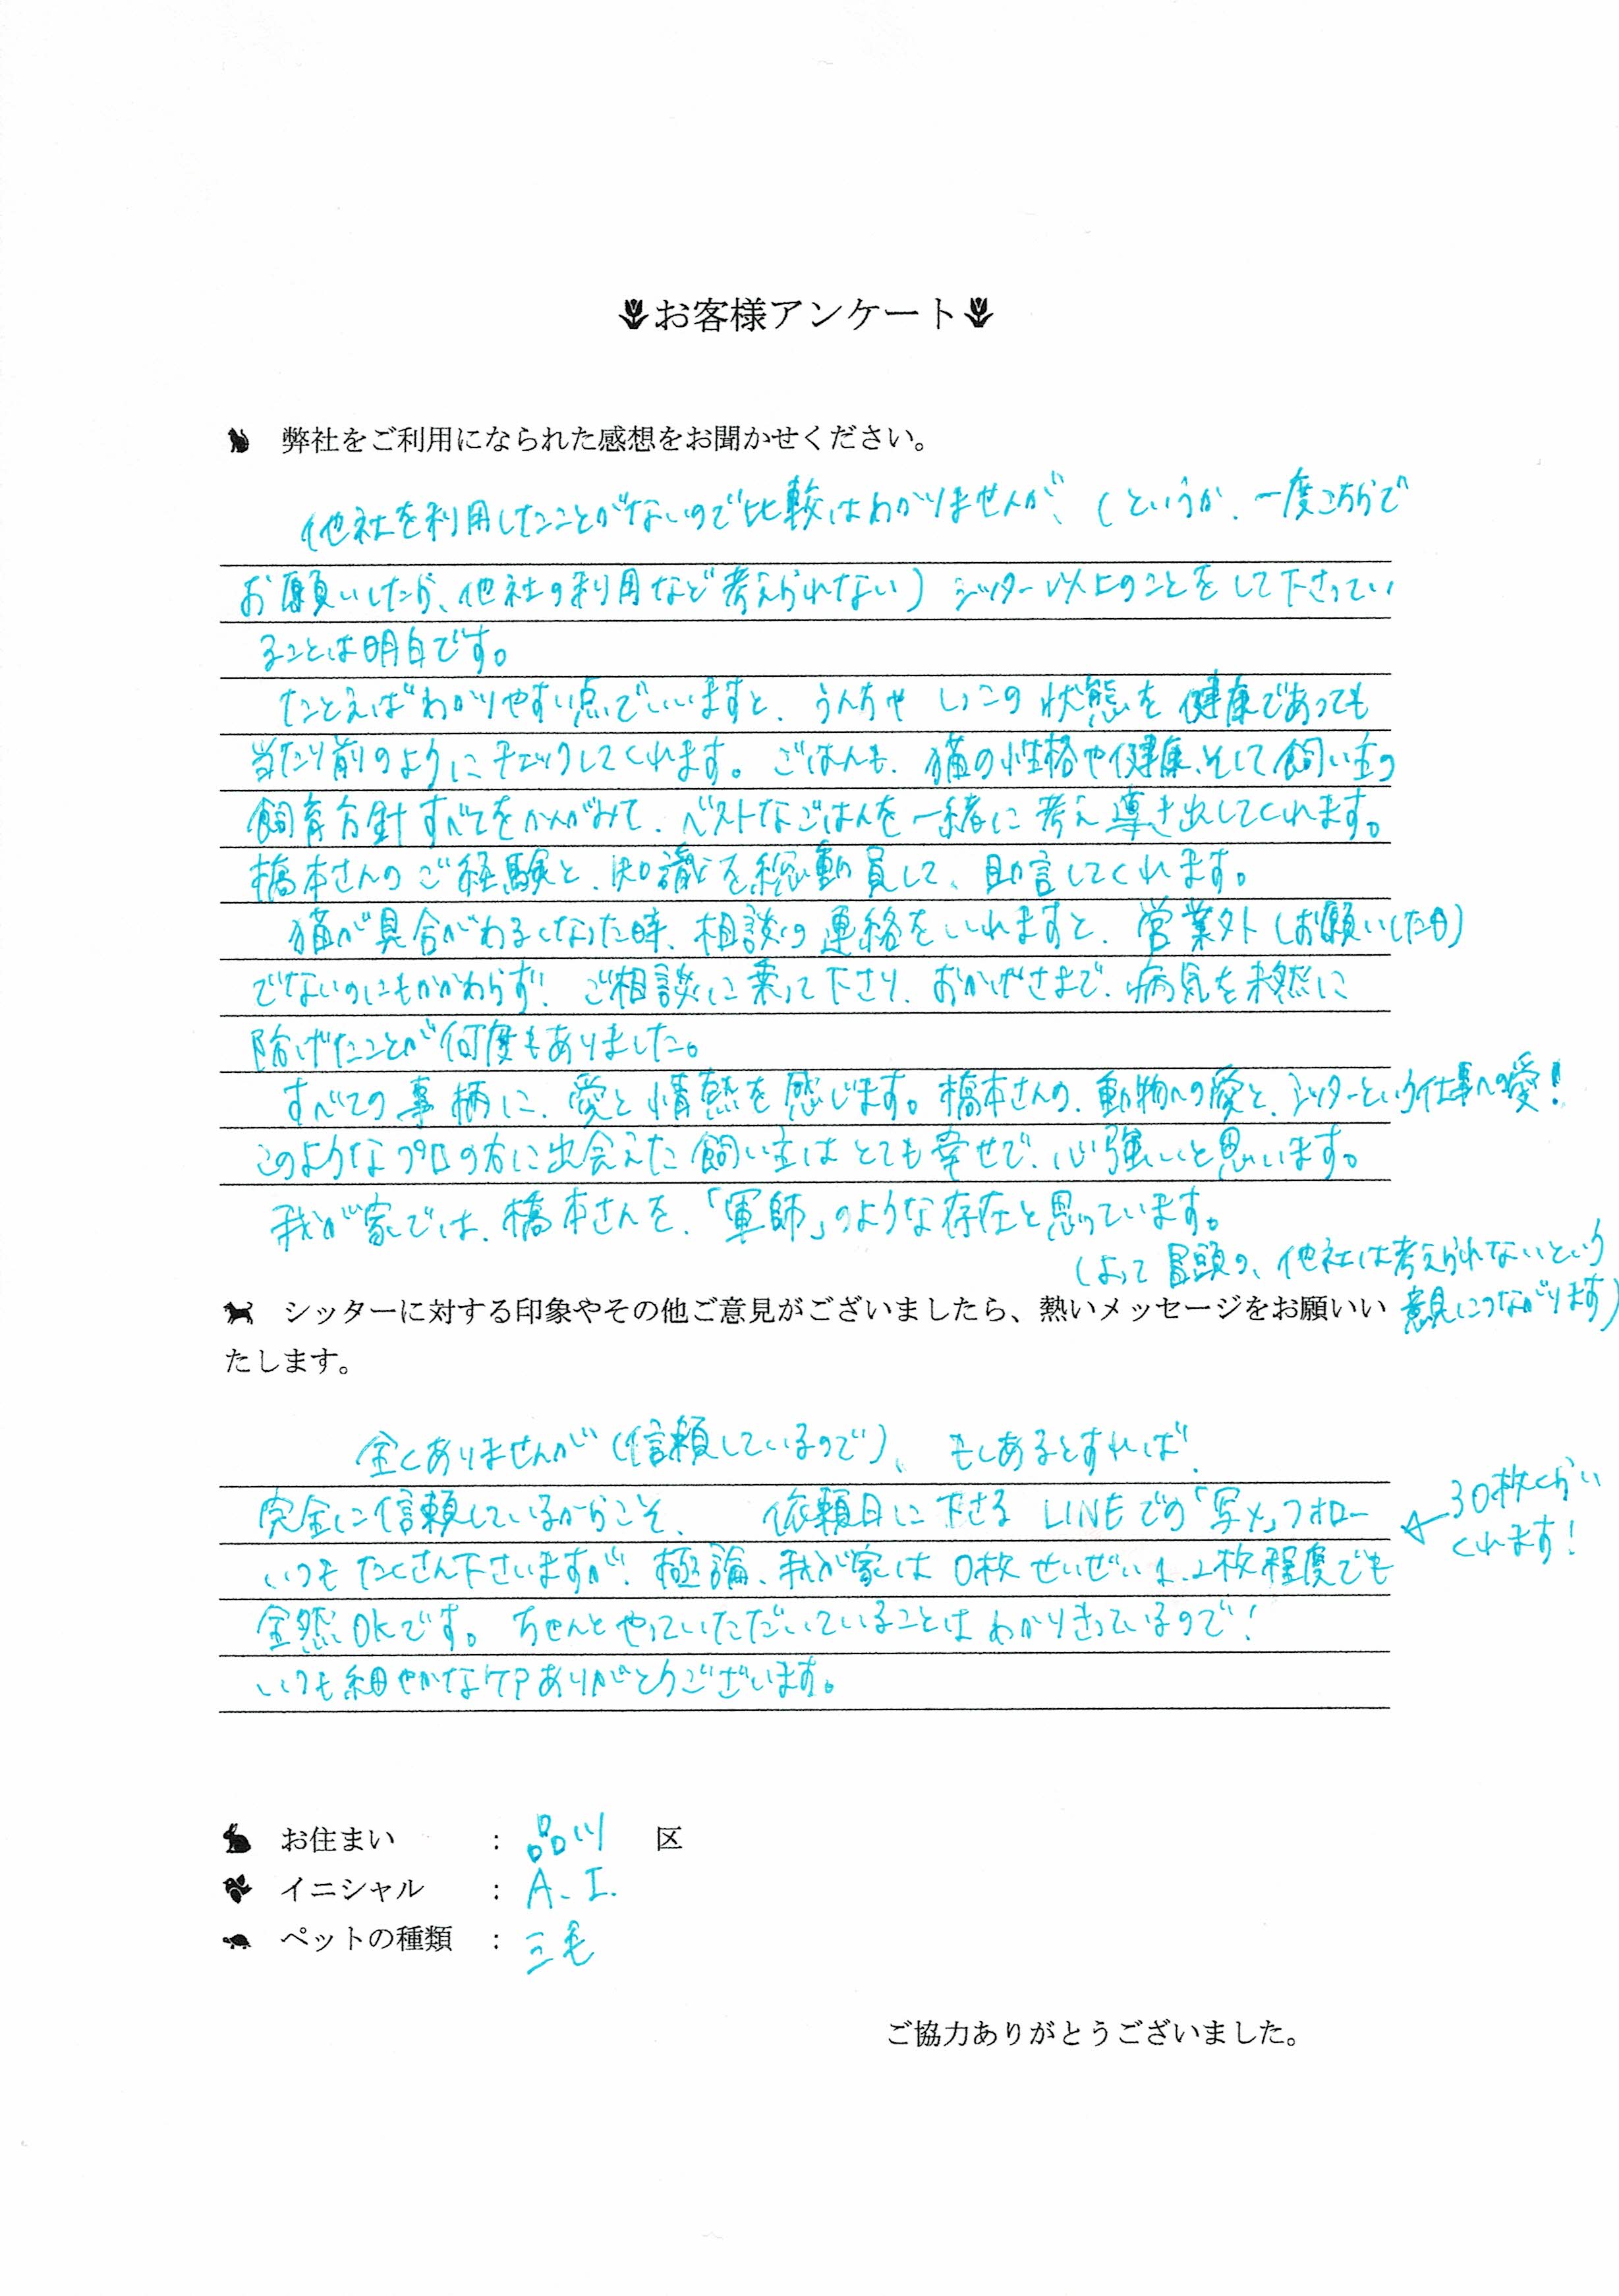 お客様アンケート
弊社をご利用になられた感想をお聞かせください。
他社を利用したことがないので比較はわかりませんが、(というか、一度こちらで
お願いしたら、他社の利用など考えられない) シッター以上のことをして下さってい
ることは明白です。
たとえばわかりやすい点でいいますと、うんちや しっこの 状態を 健康であっても
当たり前のようにチェックしてくれます。ごはんも、猫の性格や健康、そして飼い主の
飼育方針すべてをかんがみて、ベストなごはんを一緒に考え導き出してくれます。
橋本さんのご経験と、知識を総動員して、助言してくれます。
猫が具合がわるくなった時、相談の連絡をいれますと、営業外(お願いした日)
でないのにもかかわらず、ご相談に乗って下さり、おかげさまで、病気を未然に
防げたことが何度もありました。
すべての事柄に、愛と情熱を感じます。橋本さんの、動物への愛と、シッターという仕事への愛!
このようなプロの方に出会えた飼い主はとても幸せで、心強いと思います。
我が家では、橋本さんを、「軍師」のような存在と思っています。
(よって冒頭の、他社は考えられないという
意見につながります)
シッターに対する印象やその他ご意見がございましたら、熱いメッセージをお願いい
たします。
全くありませんが(信頼しているので)、もしあるとすれば、
完全に信頼しているからこそ、 依頼日に下さる LINEでの「写メ」フォロー
←30枚くらい
くれます!
いつもたくさん下さいますが、極論、我が家は0枚せいぜい1、2枚程度でも
全然OKです。ちゃんとやっていただいていることはわかりきっているので!
いつも細やかなケアありがとうございます。
お住まい : 品川 区
イニシャル : A. I.
ペットの種類 : 三毛
ご協力ありがとうございました。